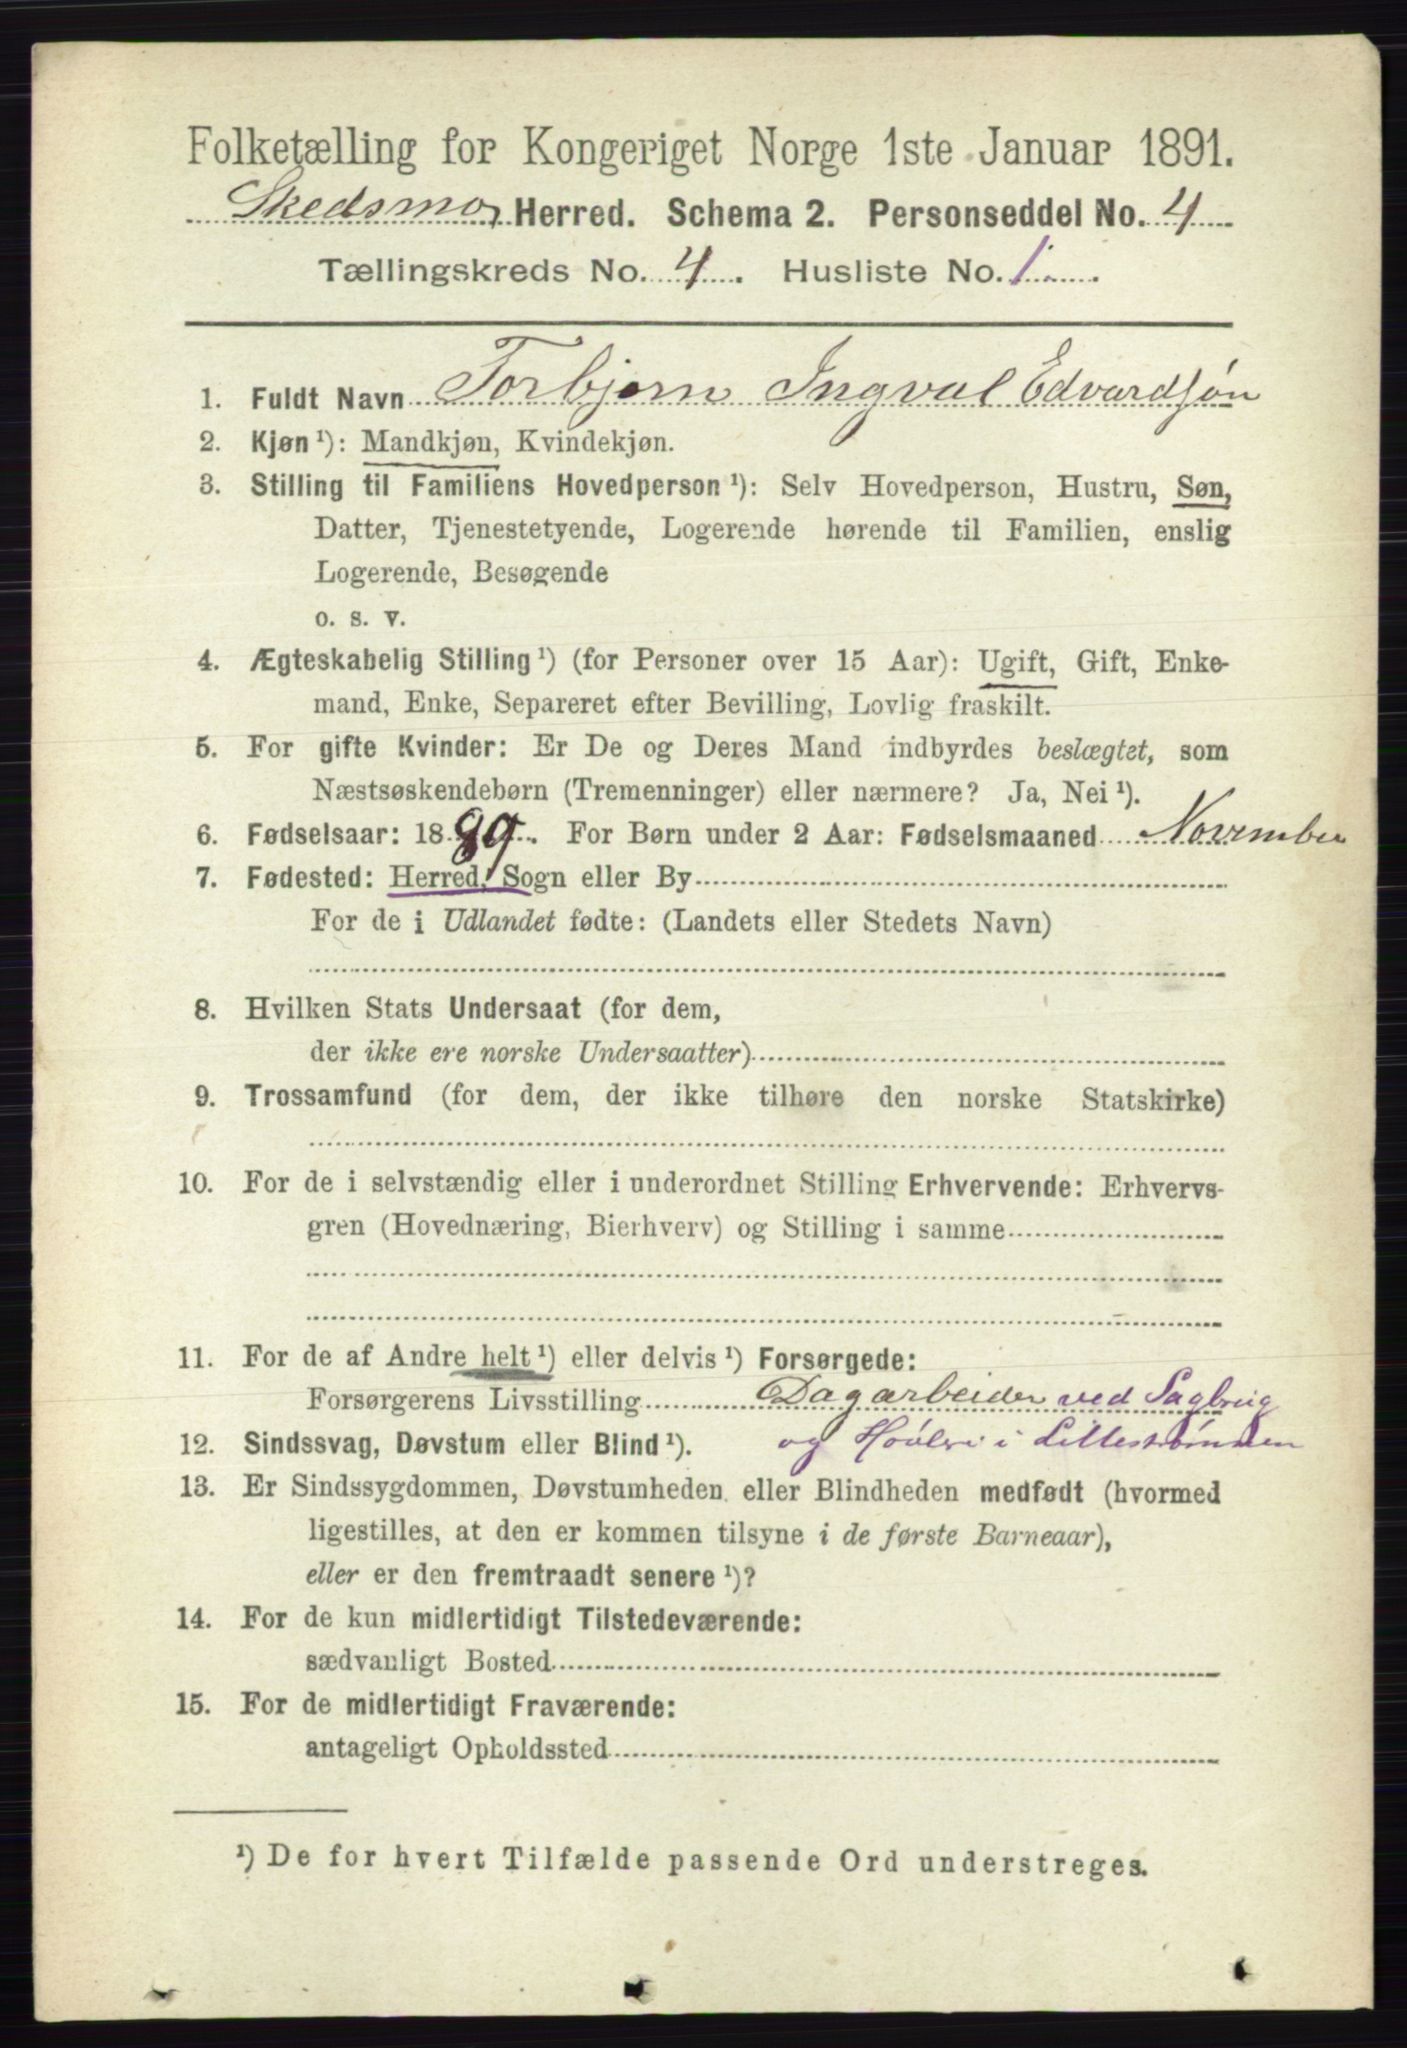 Folketælling for Kongeriget Norge 1ste Januar 1891.
Skedsmo Herred. Schema 2. Personseddel No. 4
Tællingskreds No. 4. Husliste No. 1.
1. Fuldt Navn Torbjørn Ingval Edvardsøn
2. Kjøn ¹): Mandkjøn, Kvindekjøn.
3. Stilling til Familiens Hovedperson ¹): Selv Hovedperson, Hustru, Søn,
Datter, Tjenestetyende, Logerende hørende til Familien, enslig
Logerende, Besøgende
o. s. v.
4. Ægteskabelig Stilling ¹) (for Personer over 15 Aar): Ugift, Gift, Enke-
mand, Enke, Separeret efter Bevilling, Lovlig fraskilt.
5. For gifte Kvinder: Er De og Deres Mand indbyrdes beslægtet, som
Næstsøskendebørn (Tremenninger) eller nærmere? Ja, Nei ¹).
6. Fødselsaar: 1889. For Børn under 2 Aar: Fødselsmaaned November
7. Fødested: Herred, Sogn eller By
For de i Udlandet fødte: (Landets eller Stedets Navn)
8. Hvilken Stats Undersaat (for dem,
der ikke ere norske Undersaatter)
9. Trossamfund (for dem, der ikke tilhøre den norske Statskirke)
10. For de i selvstændig eller i underordnet Stilling Erhvervende: Erhvervs-
gren (Hovednæring, Bierhverv) og Stilling i samme
11. For de af Andre helt ¹) eller delvis ¹) Forsørgede:
Forsørgerens Livsstilling Dagarbeider ved Sagbrug
12. Sindssvag, Døvstum eller Blind ¹). og Høvleri i Lillestrømmen
13. Er Sindssygdommen, Døvstumheden eller Blindheden medfødt (hvormed
ligestilles, at den er kommen tilsyne i de første Barneaar),
eller er den fremtraadt senere ¹)?
14. For de kun midlertidigt Tilstedeværende:
sædvanligt Bosted
15. For de midlertidigt Fraværende:
antageligt Opholdssted
¹) De for hvert Tilfælde passende Ord understreges.